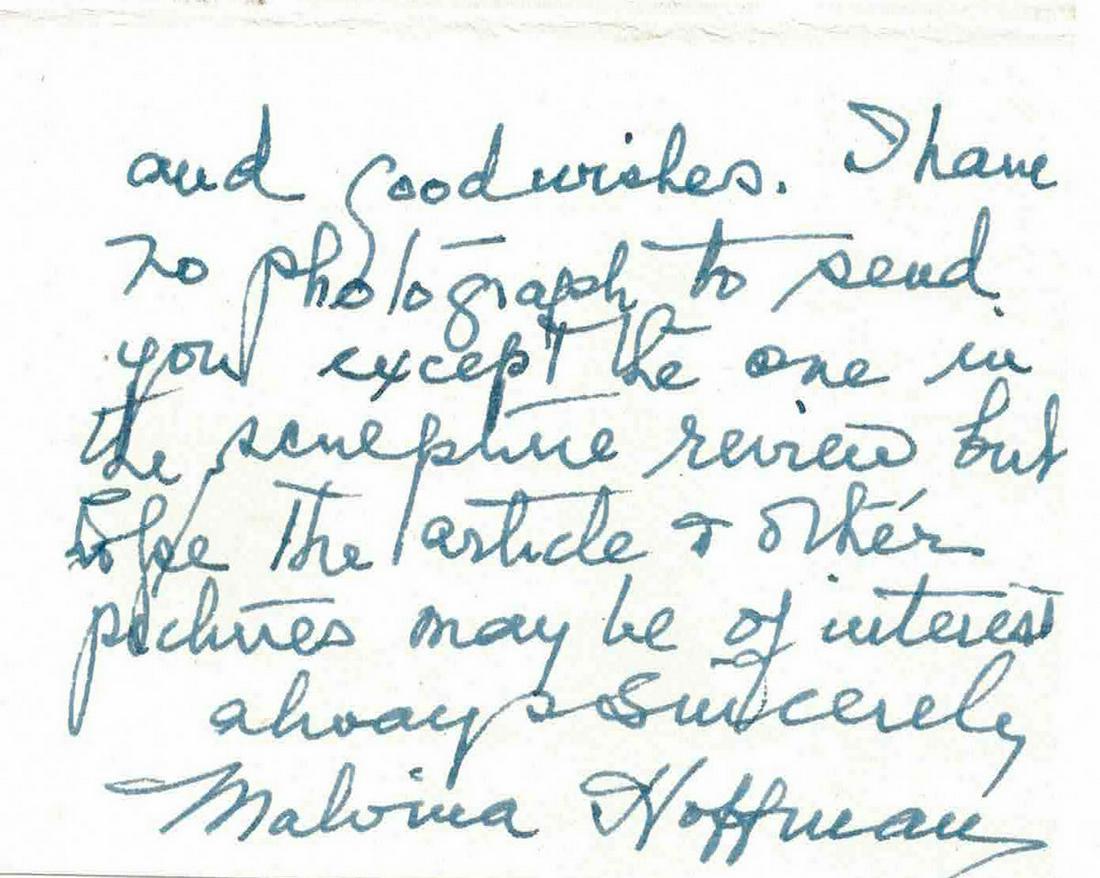 and good wishes. I have
no photograph to send
you except the one in
the sculpture review but
hope the article & other
pictures may be of interest
always sincerely
Malvina Hoffman